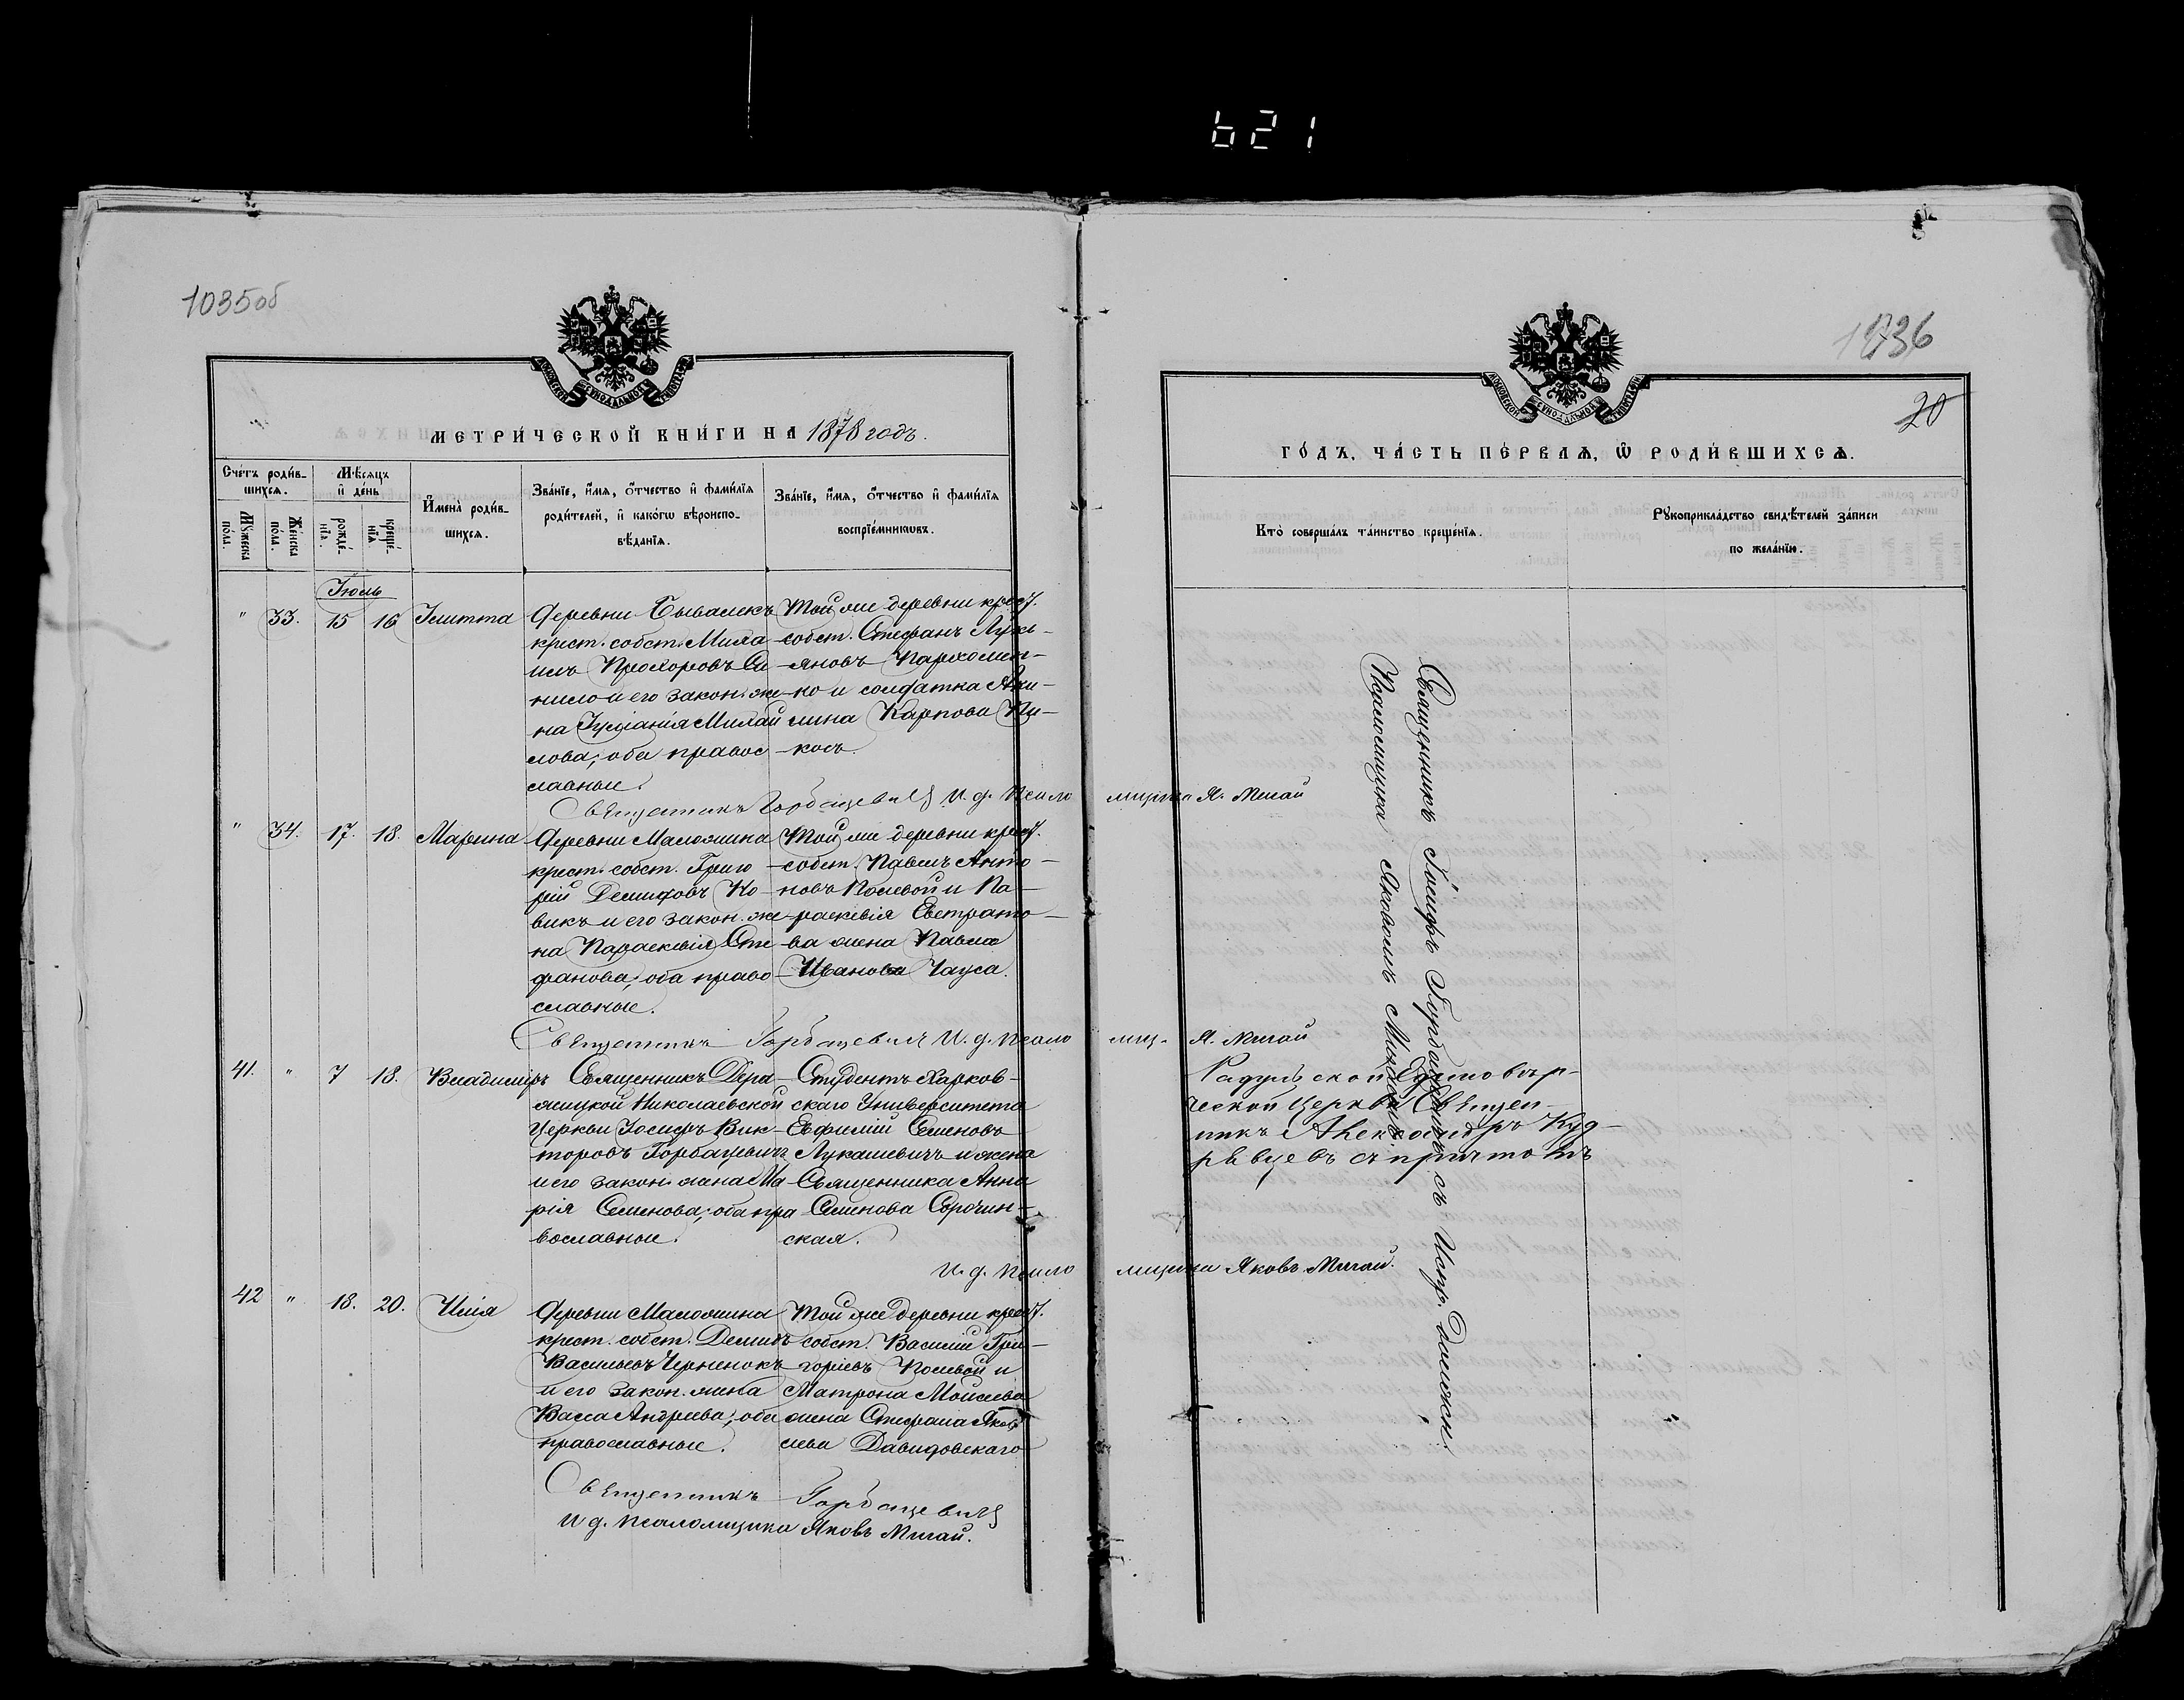 621
1035об
МЕТРИ́ЧЕСКОЙ КНИ́ГИ НА 1878 годъ.
Сче́тъ роди́в-
шихсѧ.
Мꙋ́жеска по́ла.
Же́нска по́ла.
Мѣ́сяцъ и҆ де́нь
рожде́-нїѧ.
креще́-нїѧ
И҆мена̀ роди́в-
шихсѧ.
Зва́нїе, и҆́мѧ, ѻ҆́тчество и҆ фами́лїѧ
роди́телей, и҆ како́гѡ вѣроиспо-
вѣ́данїѧ.
Зва́нїе, и҆́мѧ, ѻ҆́тчество и҆ фами́лїѧ
воспрїе́мникѡвъ.
Іюль
" 33. 15 16 Іулитта
Деревни Бывалекъ
крест. собст. Миха-
илъ Прохоровъ
и его закон. же-
на
слова; оба правос-
славные.
Той же деревни крест.
собст. Стефанъ Лукь-
яновъ Пархомен-
ко и солдатка Аки-
лина Карпова
Священникъ Горбацевичъ И. д. псало мщика Я. Мигай
" 34. 17. 18. Марина
Деревни Малоешина
крест. собст. Григо-
рій Демидовъ Но-
викъ и его закон. же-
на Параскевія Сте-
фанова; оба право-
славные.
Той же деревни крест.
собст. Павелъ Анто-
новъ Полевой и Па-
раскевія Евстрато-
ва жена Павла
Иванова Чауса.
Священникъ Горбацевичъ И. д. псало мщ. Я. Мигай
41. " 7 18. Владиміръ
Священникъ Дера-
жицкой Николаевской
Церкви Іосифъ Вик-
торовъ Горбацевичъ
и его закон. жена Ма-
рія Семенова; оба пра-
вославные.
Студентъ Харков-
скаго Университета
Евфимій Семеновъ
Лукашевичъ и жена
Священника Анна
Семенова Сорочин-
ская.
И. д. псало мщика Яковъ Мигай.
42 " 18. 20. Илія
Деревни Малоешина
крест. собст. Демидъ
Васильевъ Черненокъ
и его закон. жена
Васса Андреева; оба
православные.
Той же деревни крест.
собст. Василій Гри-
горіевъ Полевой и
Матрона Моисеева
жена Стефана Яков-
лева Давидовскаго
Священникъ Горбацевичъ
И д. псаломщика Яковъ Мигай.
1036
20
ГО́ДЪ, ЧА́СТЬ ПЕ́РВАѦ, Ѽ РОДИ́ВШИХСѦ.
Кто̀ соверша́лъ та́инство креще́нїѧ.
Рꙋкоприкла́дство свидѣ́телей за́писи
по жела́нїю.
Священникъ Іосифъ Горбацевичъ съ Испр. должн.
Псаломщика Яковомъ
Радульской Единовѣр-
ческой Церкви Священ-
никъ Александръ Куд-
рявцевъ съ причтомъ